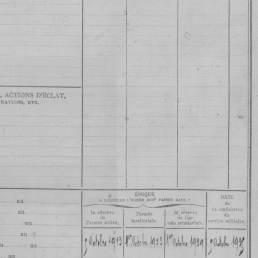 , ACTIONS D'ÉCLAT,
RATIONS, ETC.
ÉPOQUE
À LAQUELLE L'HOMME DOIT PASSER DANS :
la réserve
de
l'armée active.
l'armée
territoriale.
la réserve
de l'ar-
mée territoriale.
DATE
de
LA LIBÉRATION
du
service militaire.
au
au
au
au
au
Octobre 1913
1er Octobre 1923
1er Octobre 1929
Octobre 193